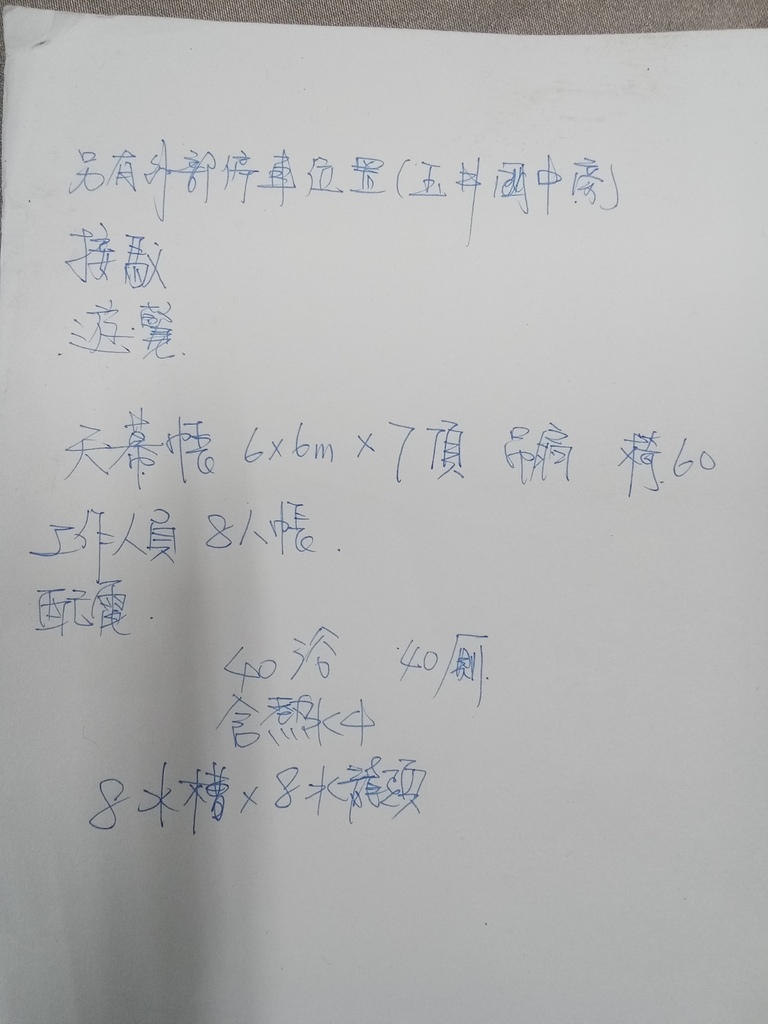 另有外部停車位置(玉井國中旁)
接駁
遊覽
天幕帳 6x6m x 7頂 吊扇 椅60
工作人員 8人帳.
配電.
40浴 40厠
含熱水4
8水槽x8水龍頭